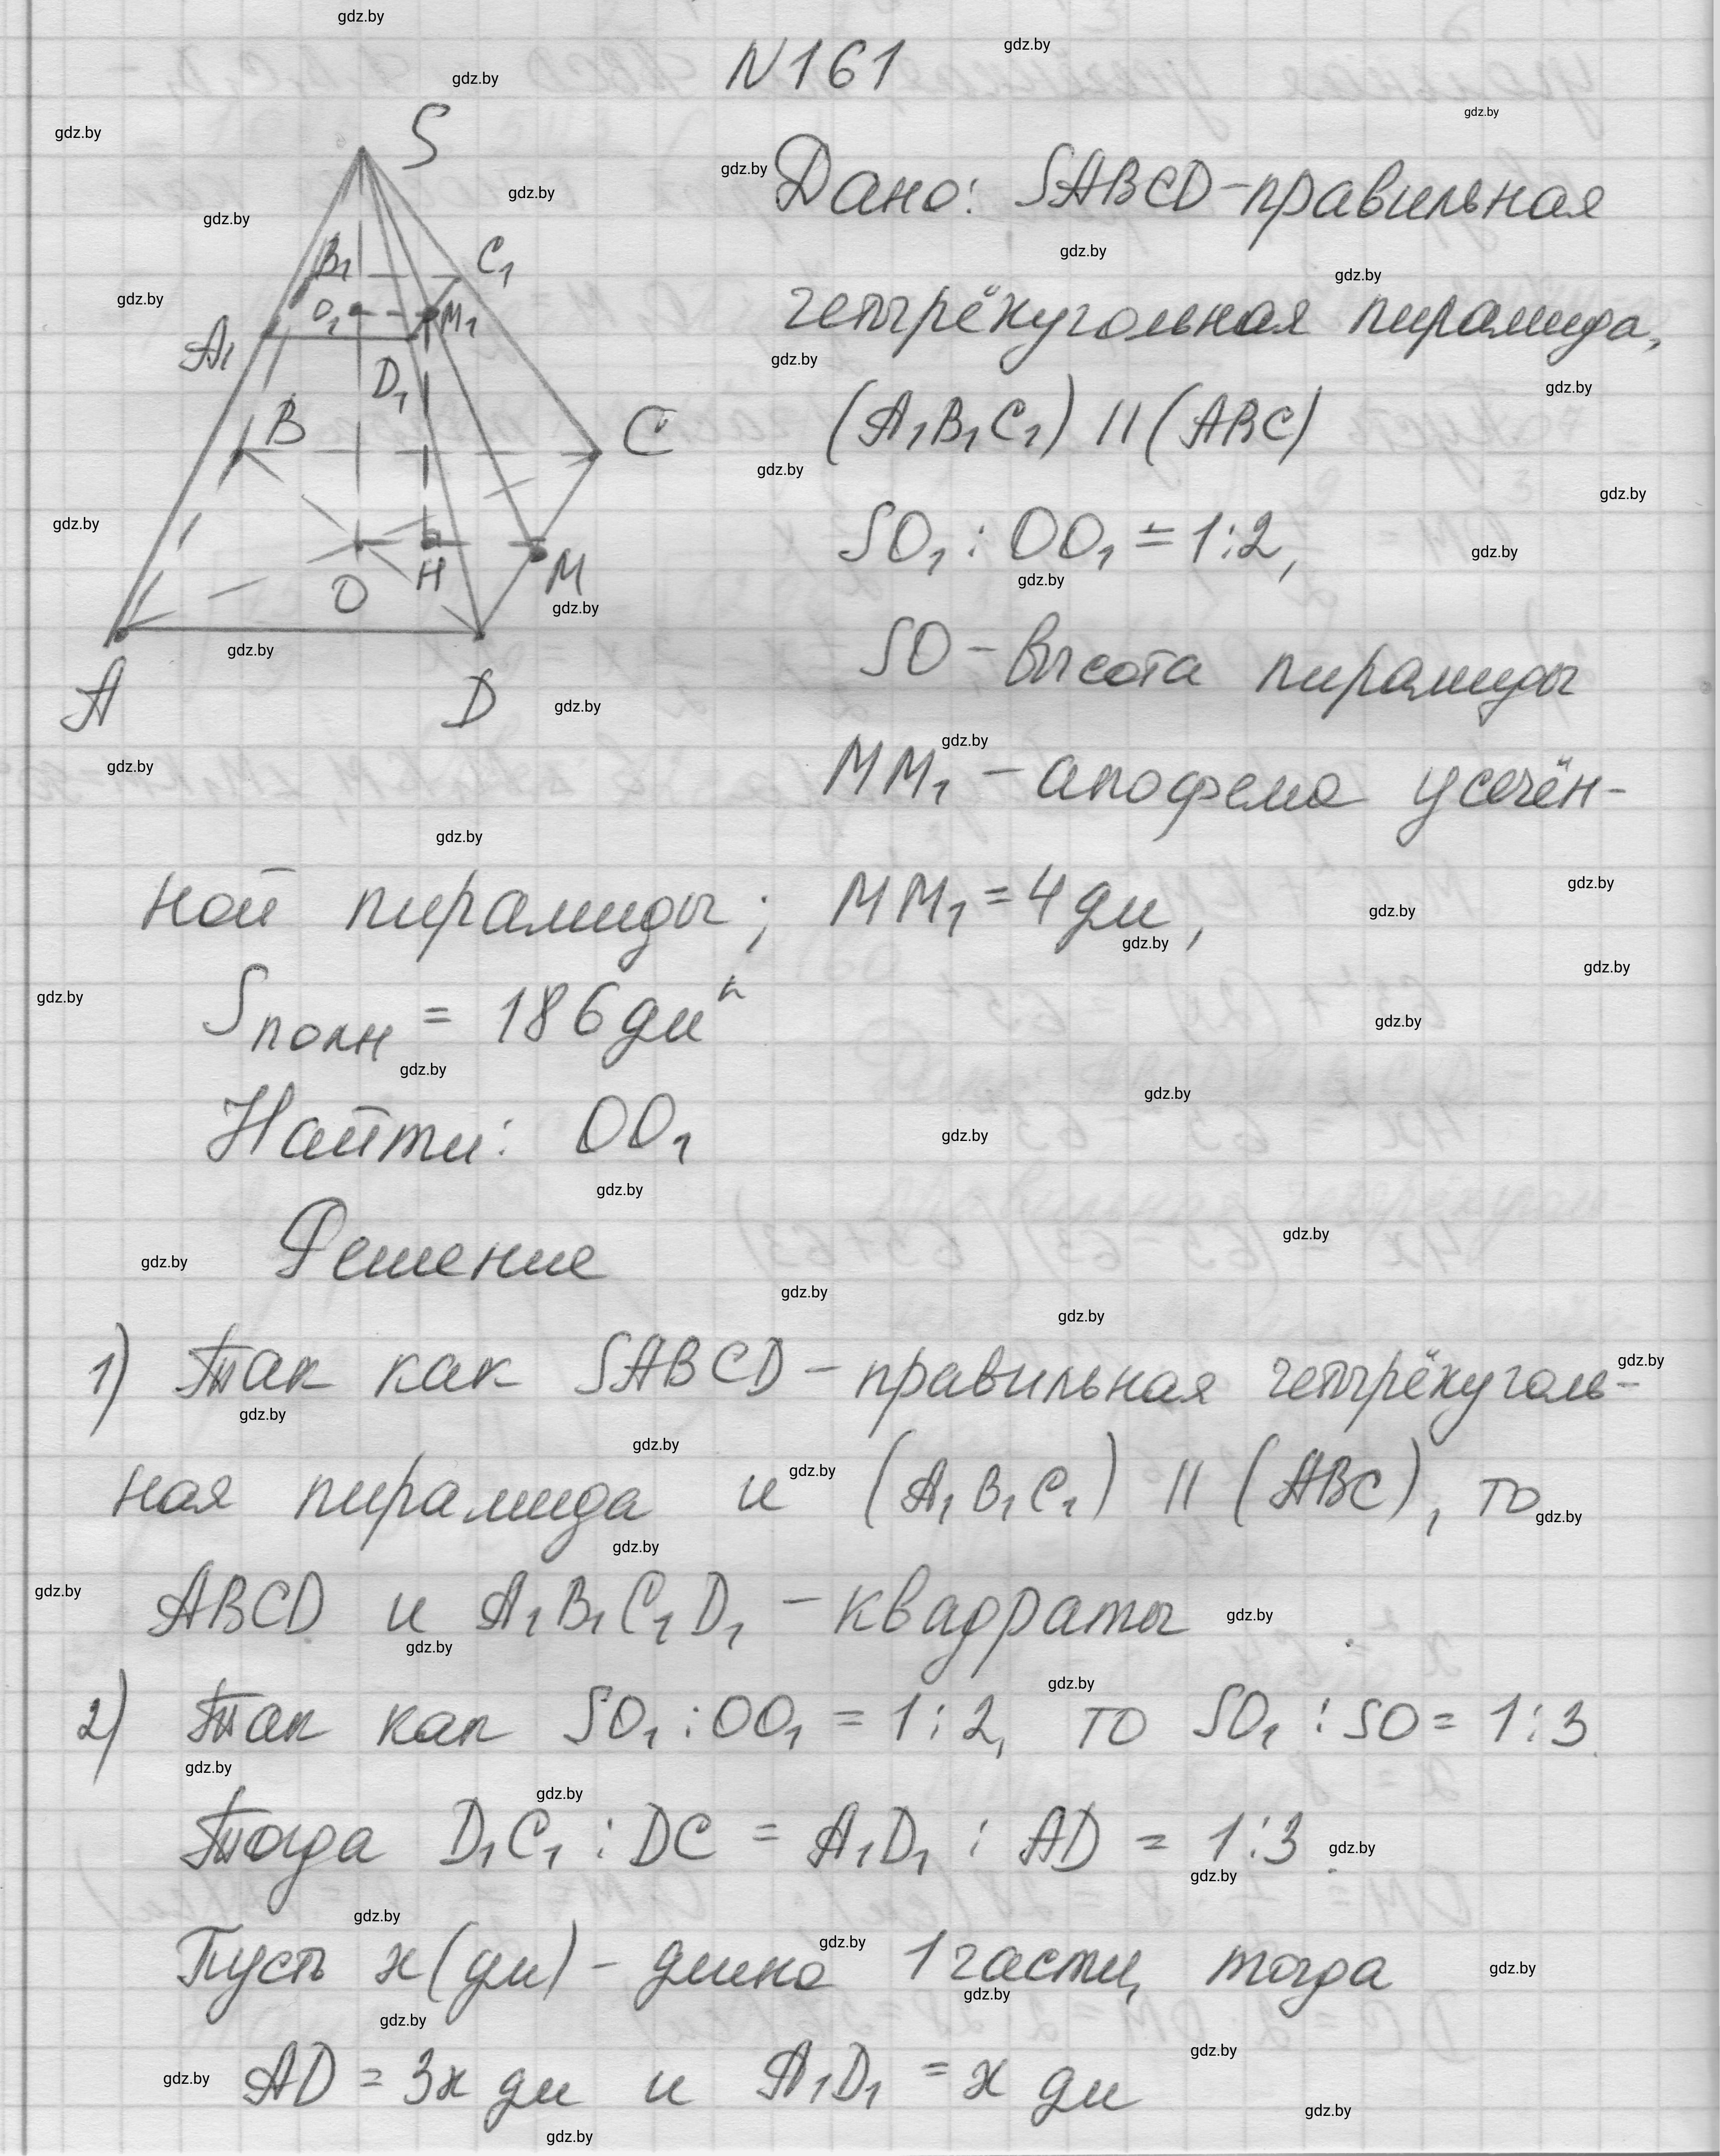 N161
S
Дано: SABCD-правильная
B₁ C₁
O₁ M₁
четырёхугольная пирамида,
A₁
D₁
B C
(A₁B₁C₁) || (ABC)
SO₁ : OO₁ = 1:2,
O H M
SO - высота пирамиды
A D
MM₁ - апофема усечён-
ной пирамиды; MM₁ = 4 дм,
Sполн = 186 дм²
Найти: OO₁
Решение
1) Так как SABCD - правильная четырёхуголь-
ная пирамида и (A₁B₁C₁) || (ABC), то
ABCD и A₁B₁C₁D₁ - квадраты
2) Так как SO₁ : OO₁ = 1:2, то SO₁ : SO = 1:3.
Тогда D₁C₁ : DC = A₁D₁ : AD = 1:3.
Пусть x (дм) - длина 1 части, тогда
AD = 3x дм и A₁D₁ = x дм
gdz.by